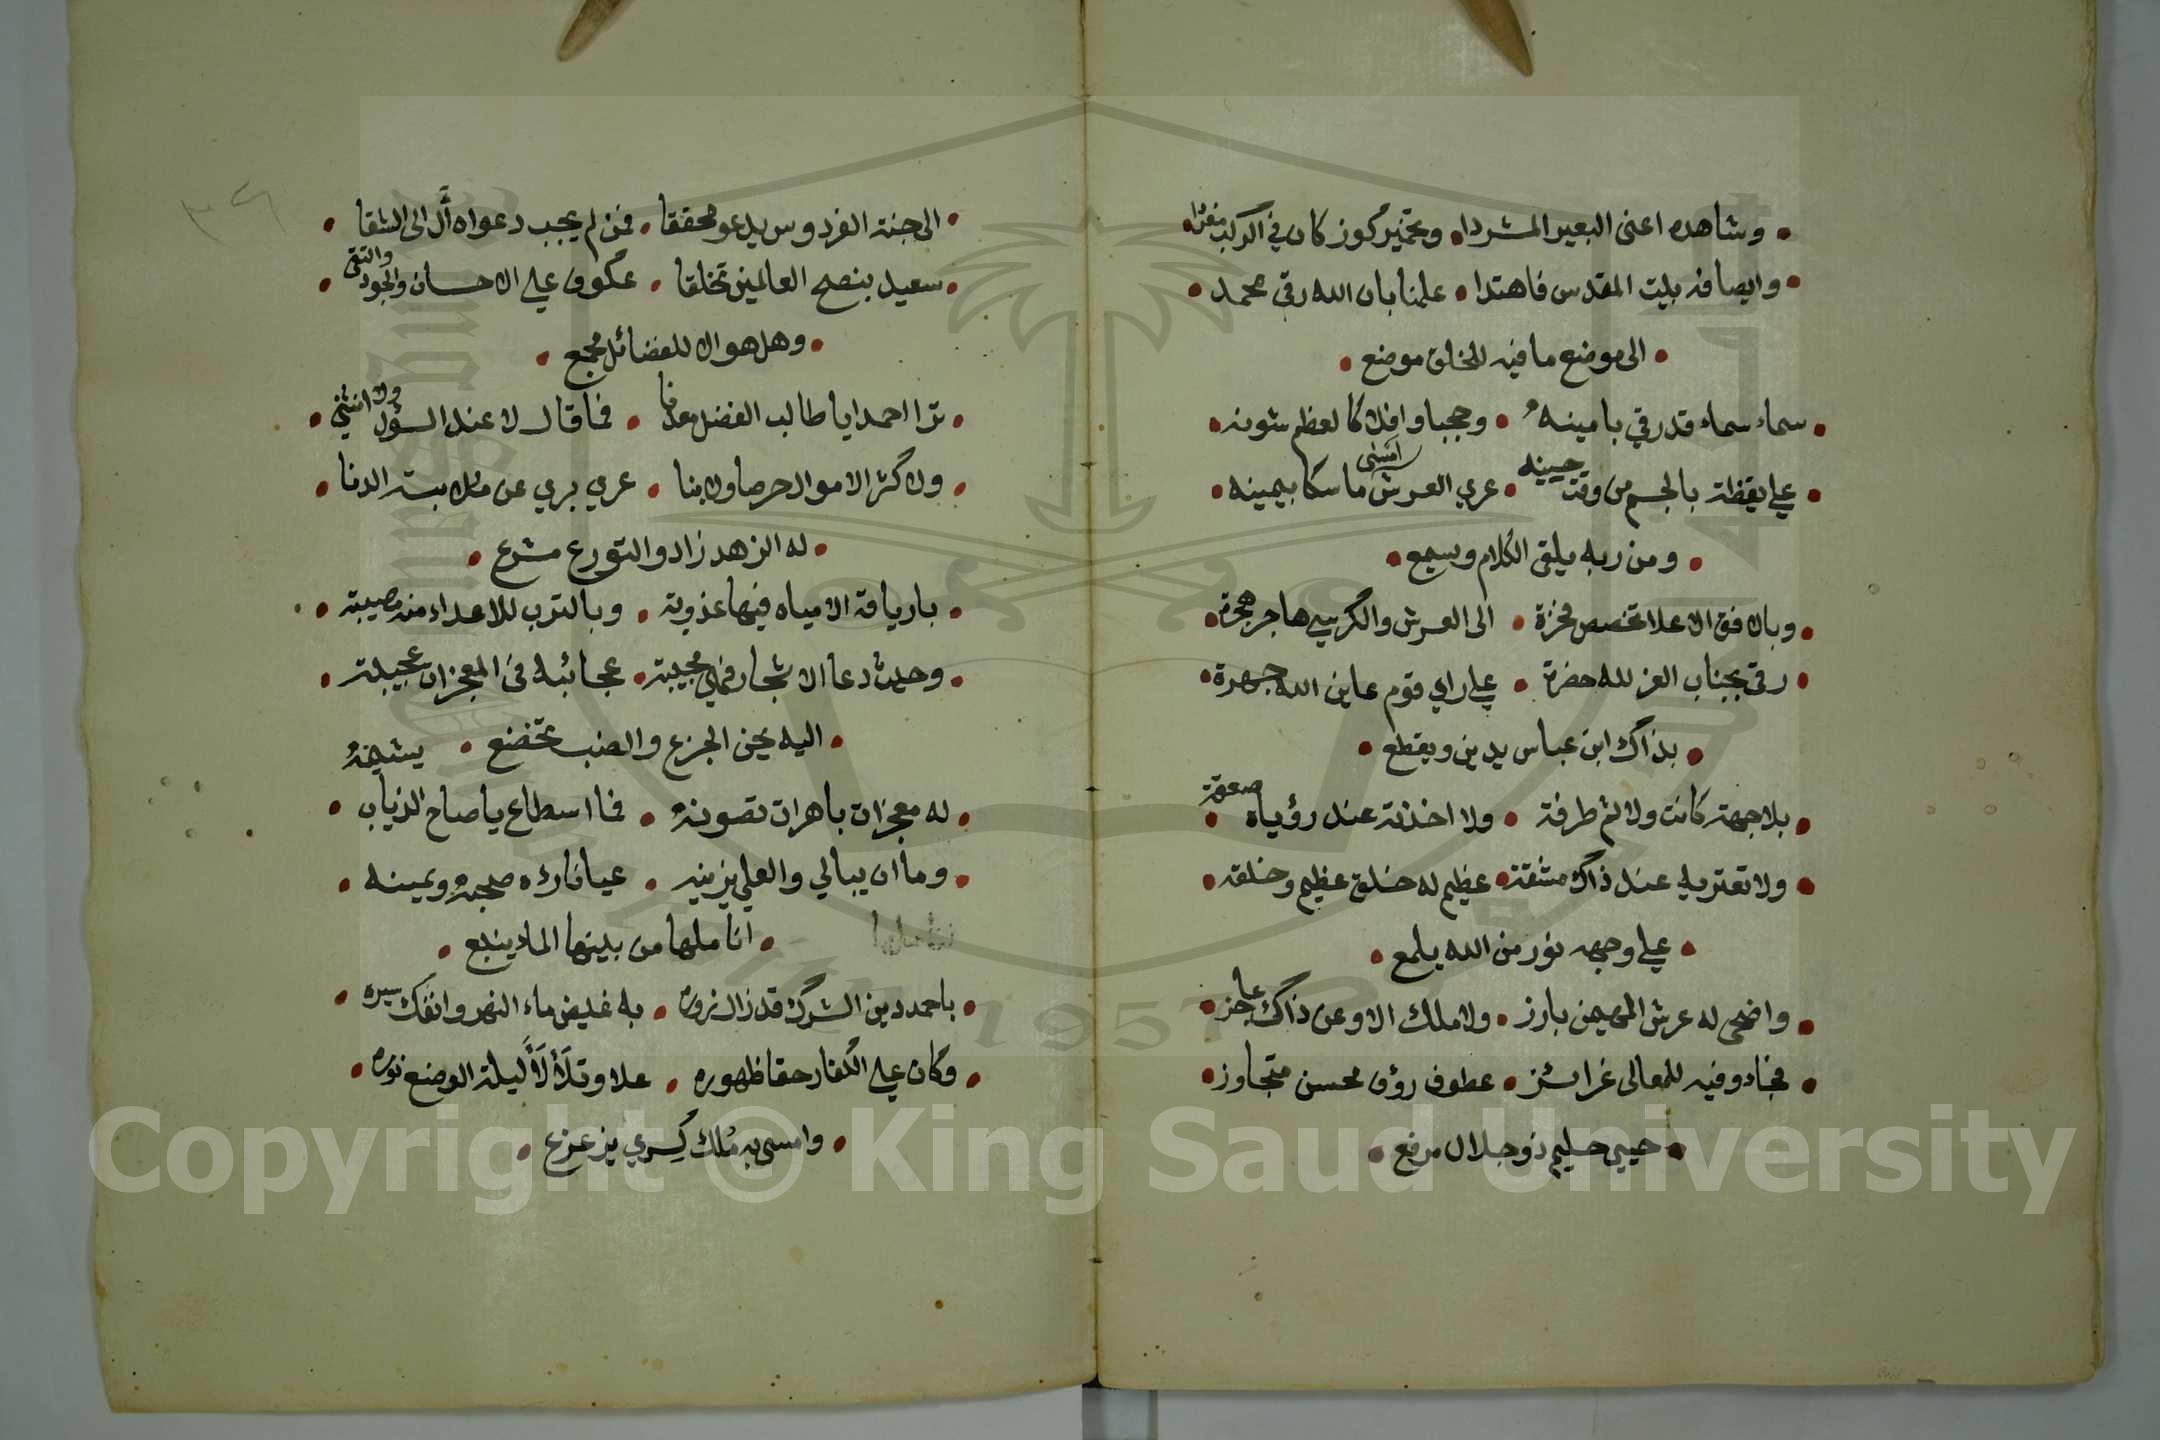 وشاهده اعنى البعير المشردا وتخمير كوز كان في الركب مفردا
وايضا فه بيت المقدس فاهتدا علمنا بان الله رقى محمد
الى موضع ما فيه للخلق موضع
سماء سماء قدر في با مينه وحجبا وافلاكا لعظم شونه
على يقظة بالجسم من وقت حينه عرى العرش امشى ماسكا بيمينه
ومن ربه يلقى الكلام ويسمع
وبالافق الاعلا تخصص فخرة الى العرش والكرسي هاجر هجرة
رقى بجناب العز لله حضرة على راي قوم عاين الله جهرة
بذاك ابن عباس يدين ويقطع
بلا جهة كانت ولا ثم طرفة ولا اخذته عند رؤياه صعقة
ولا تعتريه عند ذاك مشقة عظيم له خلق عظيم وخلقه
على وجهه نور من الله يلمع
واضحى له عرش المهيمن بارز ولا ملك الا وعن ذاك عاجز
فجاد وفيه للمعالى غرائز عطوف رؤف محسن متجاوز
حيي حليم ذو جلال مرفع
٣٤
الى جنة الفردوس يدعو محققا فمن لم يجب دعواه آل الى الشقا
سعيد بنصح العالمين تخلقا عكوف على الاحسان والجود والتقى
وهل هو الا للفضائل مجمع
ترا احمدا يا طالب الفضل معدنا فما قال لا عند السؤل ولا انثني
ولا كثر الاموال حرصا ولا بنا عري بري عن ملابسة الدنا
له الزهد زاد والتورع مشرع
بارياقه الامياه فيها عذوبة وبالترب للاعداء منه مصيبة
وحيث دعا الاشجار فهي مجيبة عجائبه فى المعجزات عجيبة
اليه يحن الجزع والضب يخضع
له معجزات باهرات تصونه فما اسطاع يا صاح الذياب يشينه
وما ان يبالي والعلي يزينه عيانا رءه صحبه ويمينه
اناملها من بينها الماء ينبع
باحمد دين الشرك قد زال نوره به غيض ماء النهر وانفك سيره
وكان على الكفار حقا ظهوره علا وتلألأ ليلة الوضع نوره
وامسى به ملك كسري يزعزع
Copyright © King Saud University
1957